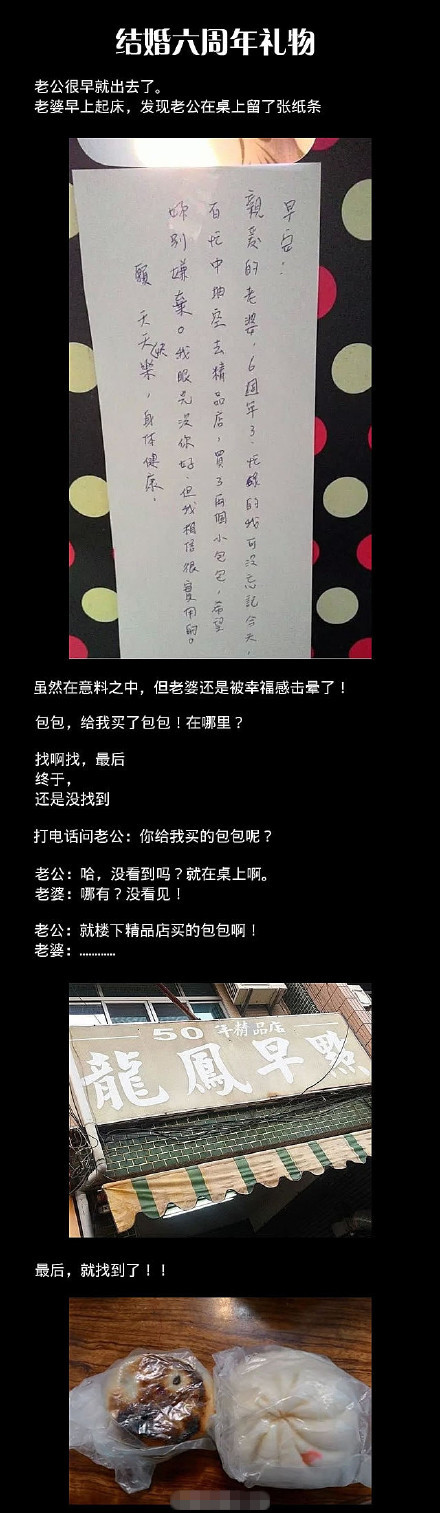 结婚六周年礼物
老公很早就出去了。
老婆早上起床，发现老公在桌上留了张纸条
早安：
親爱的老婆，6週年了．忙碌的我可没忘記今天，
百忙中抽空去精品店，買了兩個小包包，希望
妳别嫌棄。我眼光没你好．但我相信很實用的。
願 天天快樂，身体健康．
虽然在意料之中，但老婆还是被幸福感击晕了！
包包，给我买了包包！在哪里？
找啊找，最后
终于，
还是没找到
打电话问老公：你给我买的包包呢？
老公：哈，没看到吗？就在桌上啊。
老婆：哪有？没看见！
老公：就楼下精品店买的包包啊！
老婆：…………
50 年精品店
龍鳳早點
最后，就找到了！！